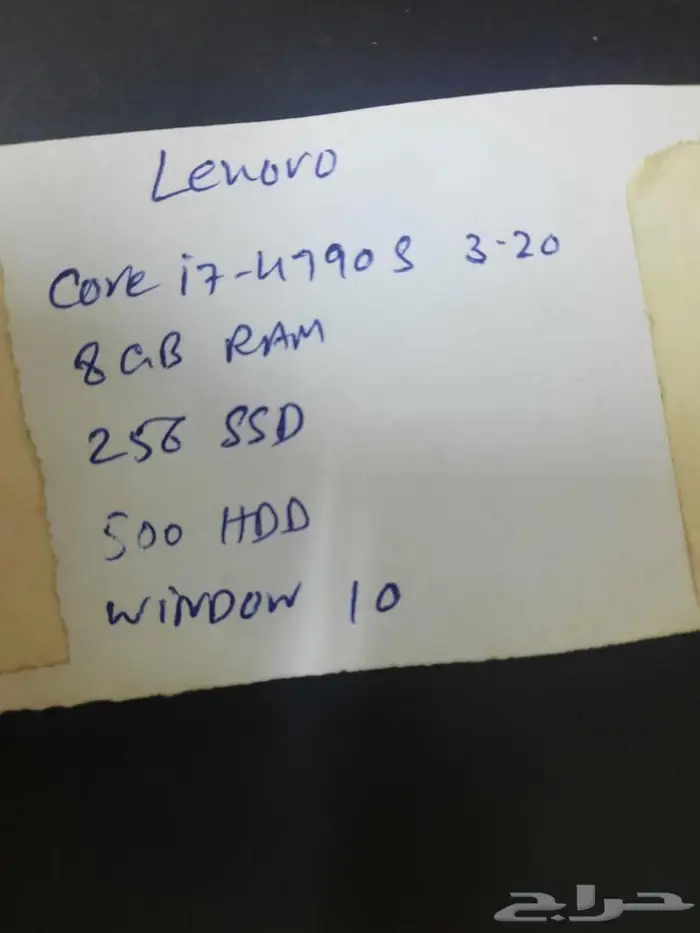 Lenovo
Core i7-4790S 3.20
8GB RAM
256 SSD
500 HDD
WINDOW 10
حراج